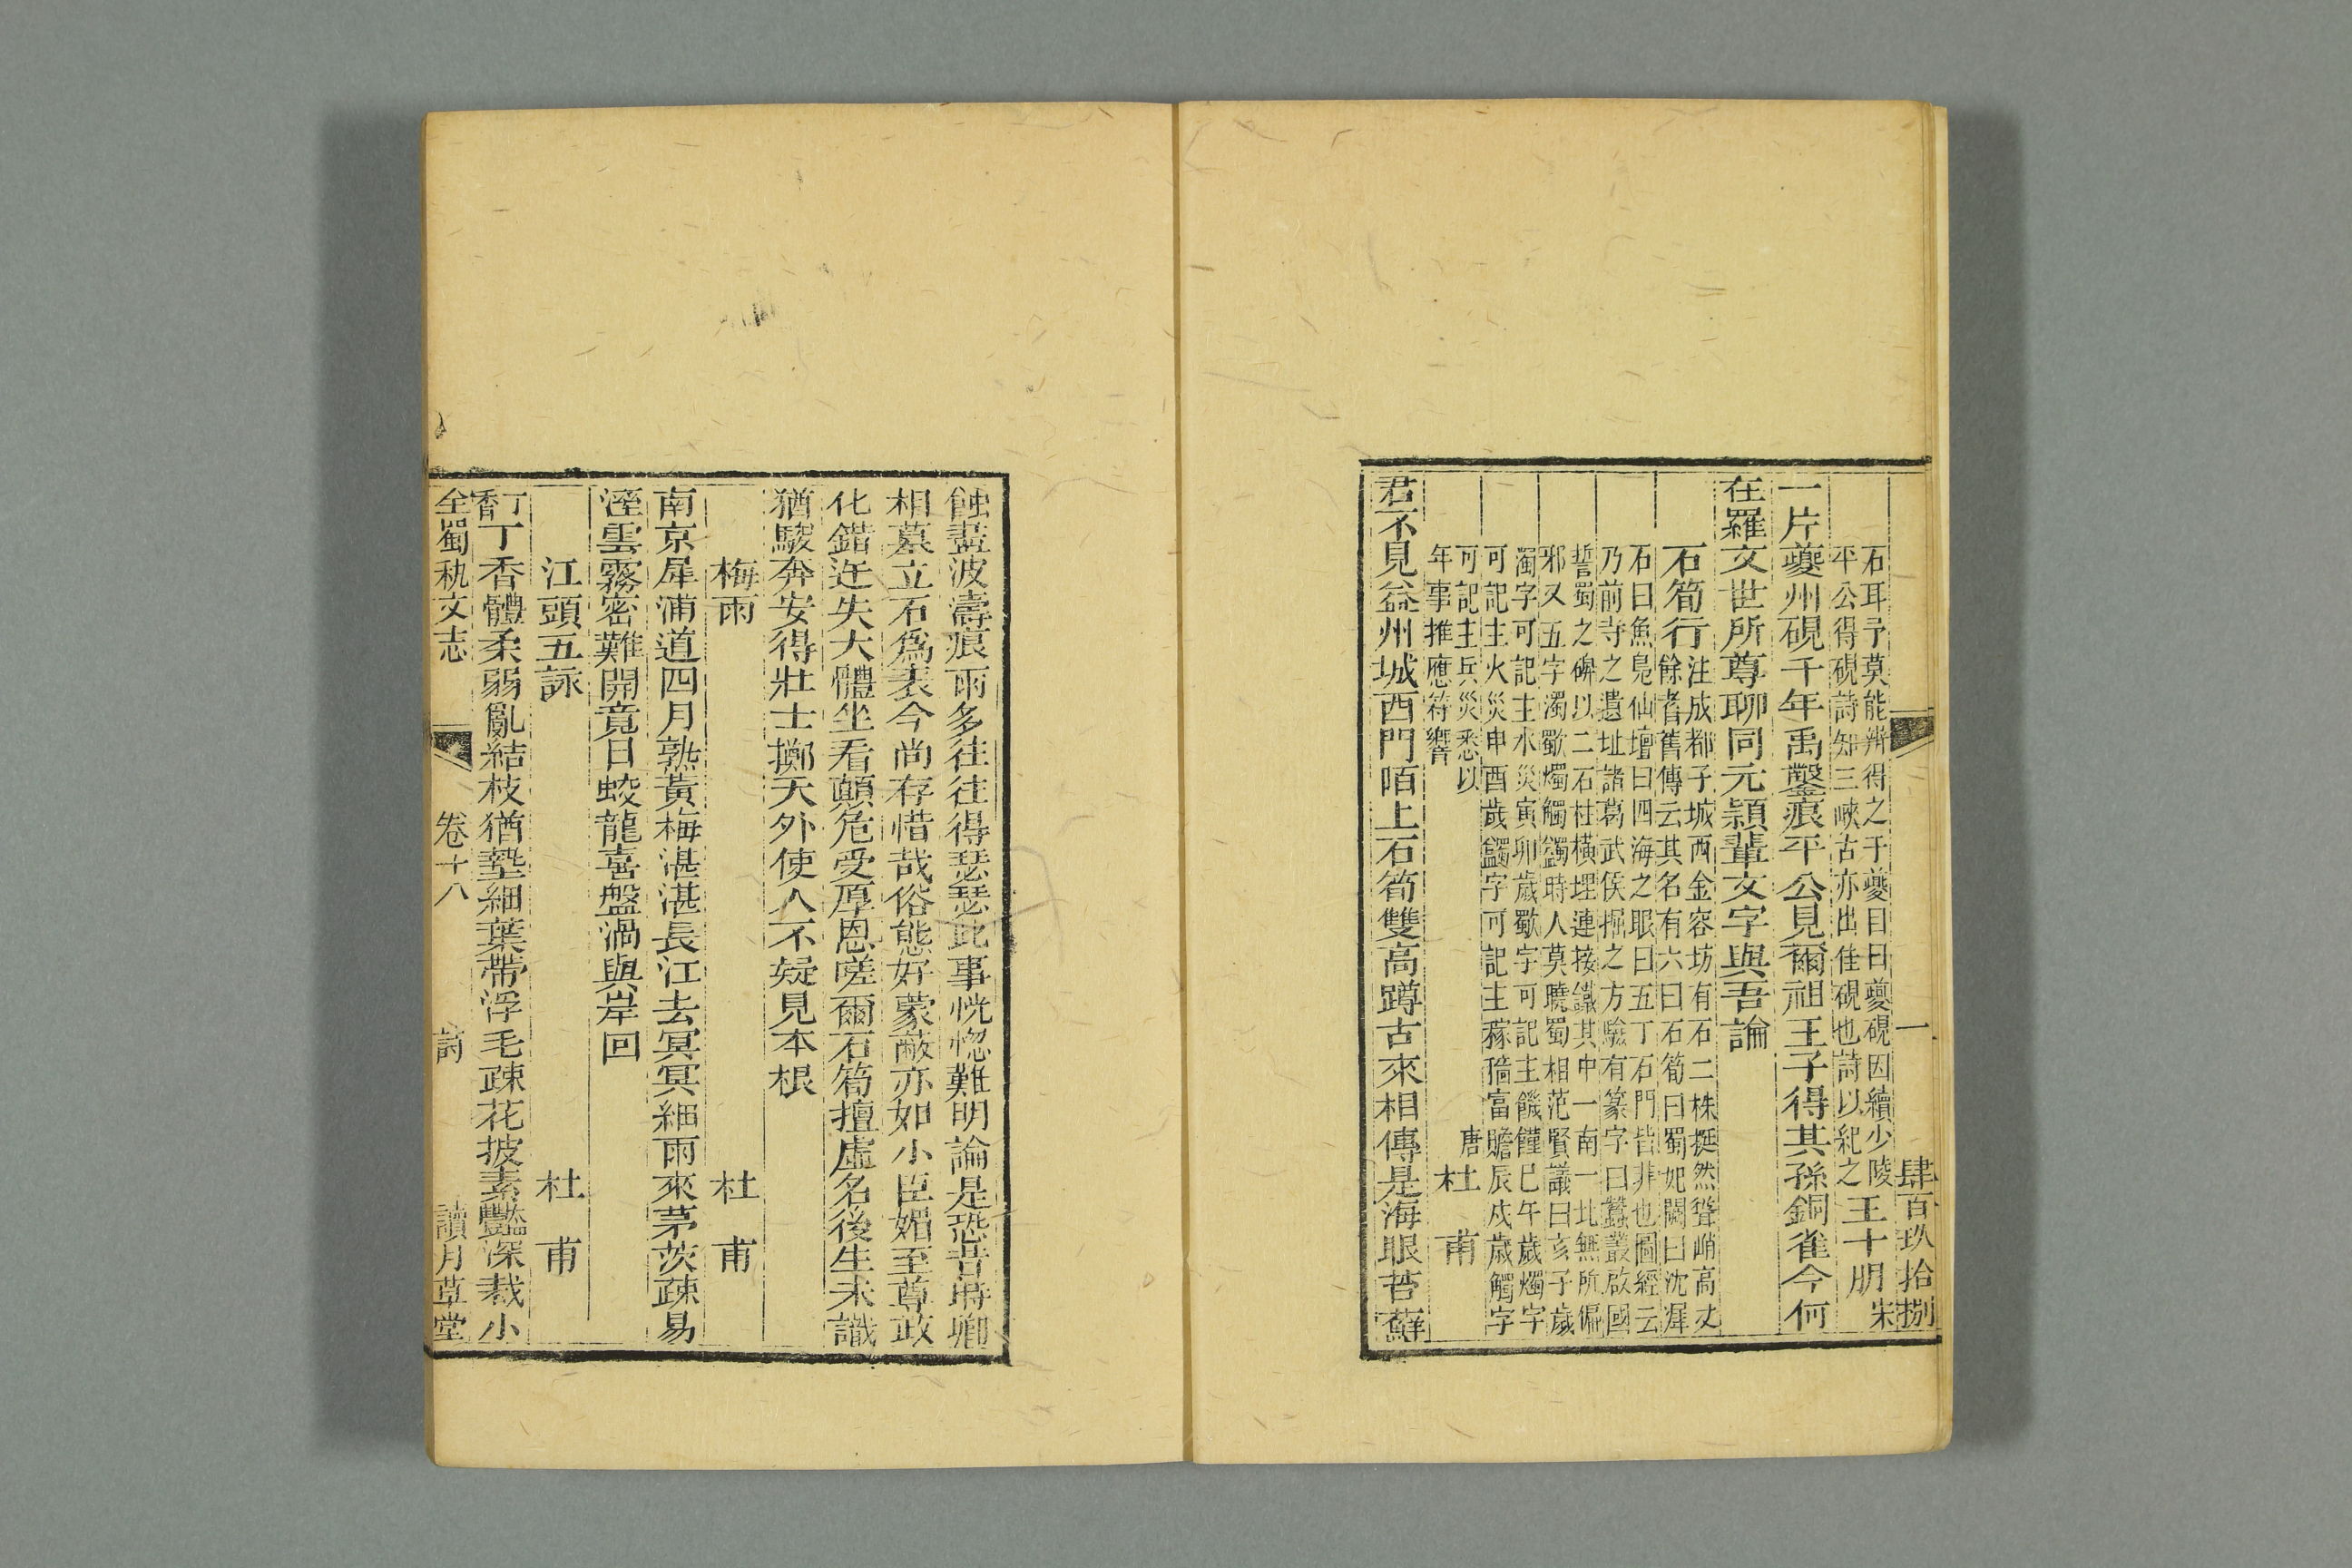 一　肆百玖拾捌
石耳予莫能辨得之于夔目曰夔硯因續少陵
平公得硯詩知三峽古亦出佳硯也詩以紀之
宋王十朋
一片夔州硯千年禹鑿痕平公見爾祖王子得其孫銅雀今何
在羅文世所尊聊同元穎輩文字與吾論
石筍行
注成都子城西金容坊有石二株挺然聳峭高丈
餘耆舊傳云其名有六曰石筍曰蜀妃闕曰沈犀
石曰魚鳧仙壇曰四海之眼曰五丁石門皆非也圖經云
乃前寺之遺址諸葛武侯掘之方驗有篆字曰蠶叢啟國
誓蜀之碑以二石柱橫埋連接鐵其中一南一北無所偏
邪又五字濁歜燭觸鐲時人莫曉蜀相范賢議曰亥子歲
濁字可記主水災寅卯歲歜字可記主饑饉巳午歲燭字
可記主火災申酉歲鐲字可記主稼穡富贍辰戌歲觸字
可記主兵災悉以
年事推應符響
唐杜甫
君不見益州城西門陌上石筍雙高蹲古來相傳是海眼苔蘚
蝕盡波濤痕雨多往往得瑟瑟此事恍惚難明論是恐昔時卿
相墓立石爲表今尚存惜哉俗態好蒙蔽亦如小臣媚至尊政
化錯迕失大體坐看顛危受厚恩嗟爾石筍擅虛名後生未識
猶駿奔安得壯士擲天外使人不疑見本根
梅雨　杜甫
南京犀浦道四月熟黃梅湛湛長江去冥冥細雨來茅茨疎易
溼雲霧密難開竟日蛟龍喜盤渦與岸回
江頭五詠　杜甫
丁香丁香體柔弱亂結枝猶墊細葉帶浮毛疎花披素豔深栽小
全蜀秇文志　卷十八　詩　讀月草堂